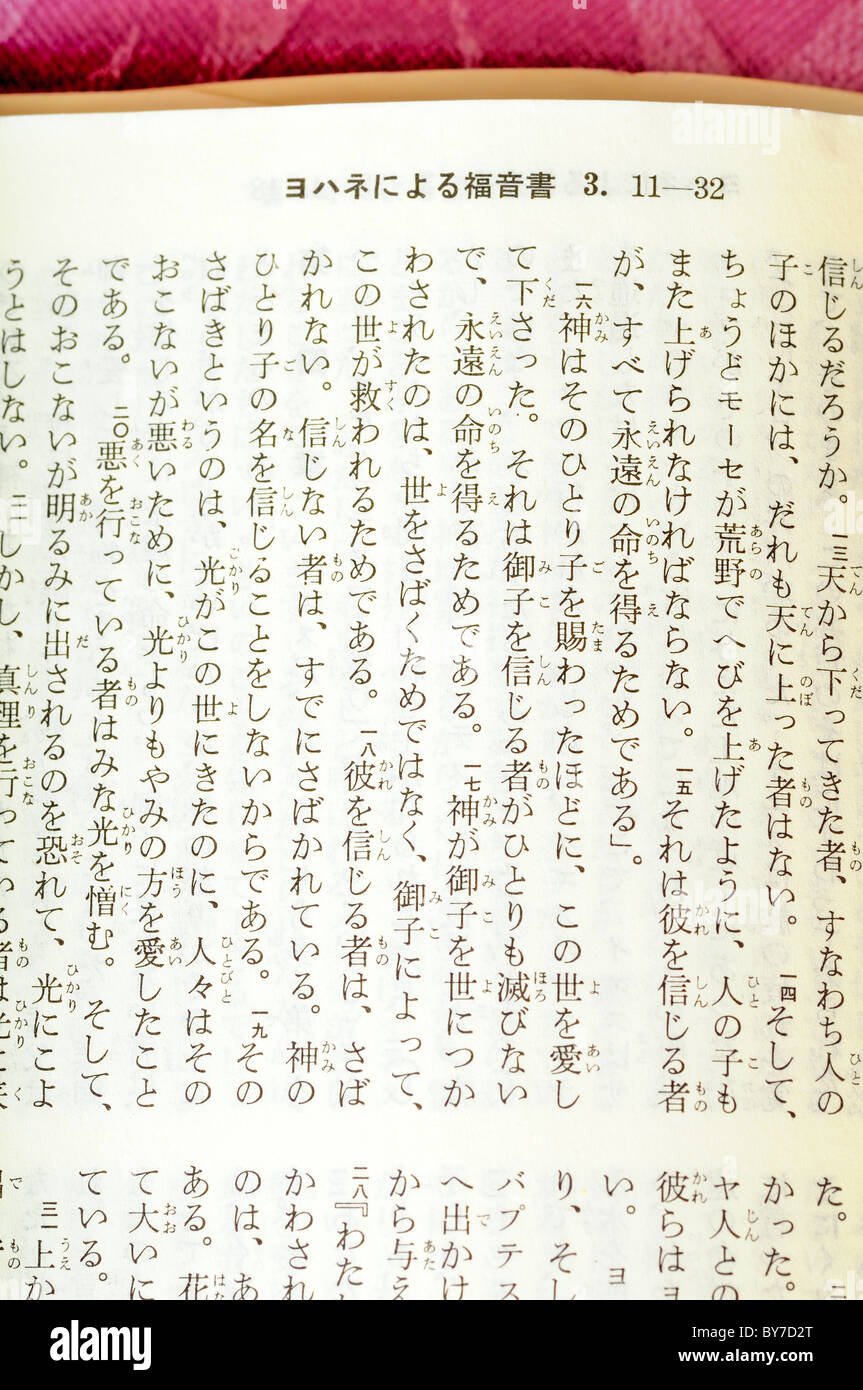 ヨハネによる福音書 3. 11—32
信じるだろうか。一三天から下ってきた者、すなわち人の
子のほかには、だれも天に上った者はない。一四そして、
ちょうどモーセが荒野でへびを上げたように、人の子も
また上げられなければならない。一五それは彼を信じる者
が、すべて永遠の命を得るためである」。
一六神はそのひとり子を賜わったほどに、この世を愛し
て下さった。それは御子を信じる者がひとりも滅びない
で、永遠の命を得るためである。一七神が御子を世につか
わされたのは、世をさばくためではなく、御子によって、
この世が救われるためである。一八彼を信じる者は、さば
かれない。信じない者は、すでにさばかれている。神の
ひとり子の名を信じることをしないからである。一九その
さばきというのは、光がこの世にきたのに、人々はその
おこないが悪いために、光よりもやみの方を愛したこと
である。二〇悪を行っている者はみな光を憎む。そして、
そのおこないが明るみに出されるのを恐れて、光にこよ
うとはしない。二一しかし、真理を行っている者は光に
た。
かった。
ヤ人との
彼らはヨ
い。ヨ
り、そし
バプテス
へ出かけ
から与え
二八『わた
かわされ
のは、あ
ある。花
て大いに
ている。
三一上か
alamy
Image ID: BY7D2T
www.alamy.com